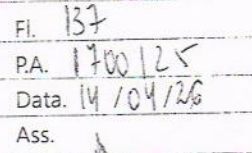 Fl. 137
P.A. 1700/25
Data. 14/04/26
Ass.